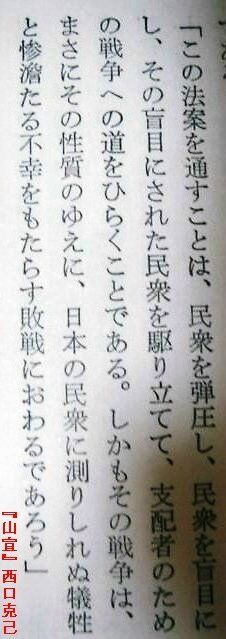 「この法案を通すことは、民衆を弾圧し、民衆を盲目に
し、その盲目にされた民衆を駆り立てて、支配者のため
の戦争への道をひらくことである。しかもその戦争は、
まさにその性質のゆえに、日本の民衆に測りしれぬ犠牲
と惨澹たる不幸をもたらす敗戦におわるであろう」
『山宣』西口克己